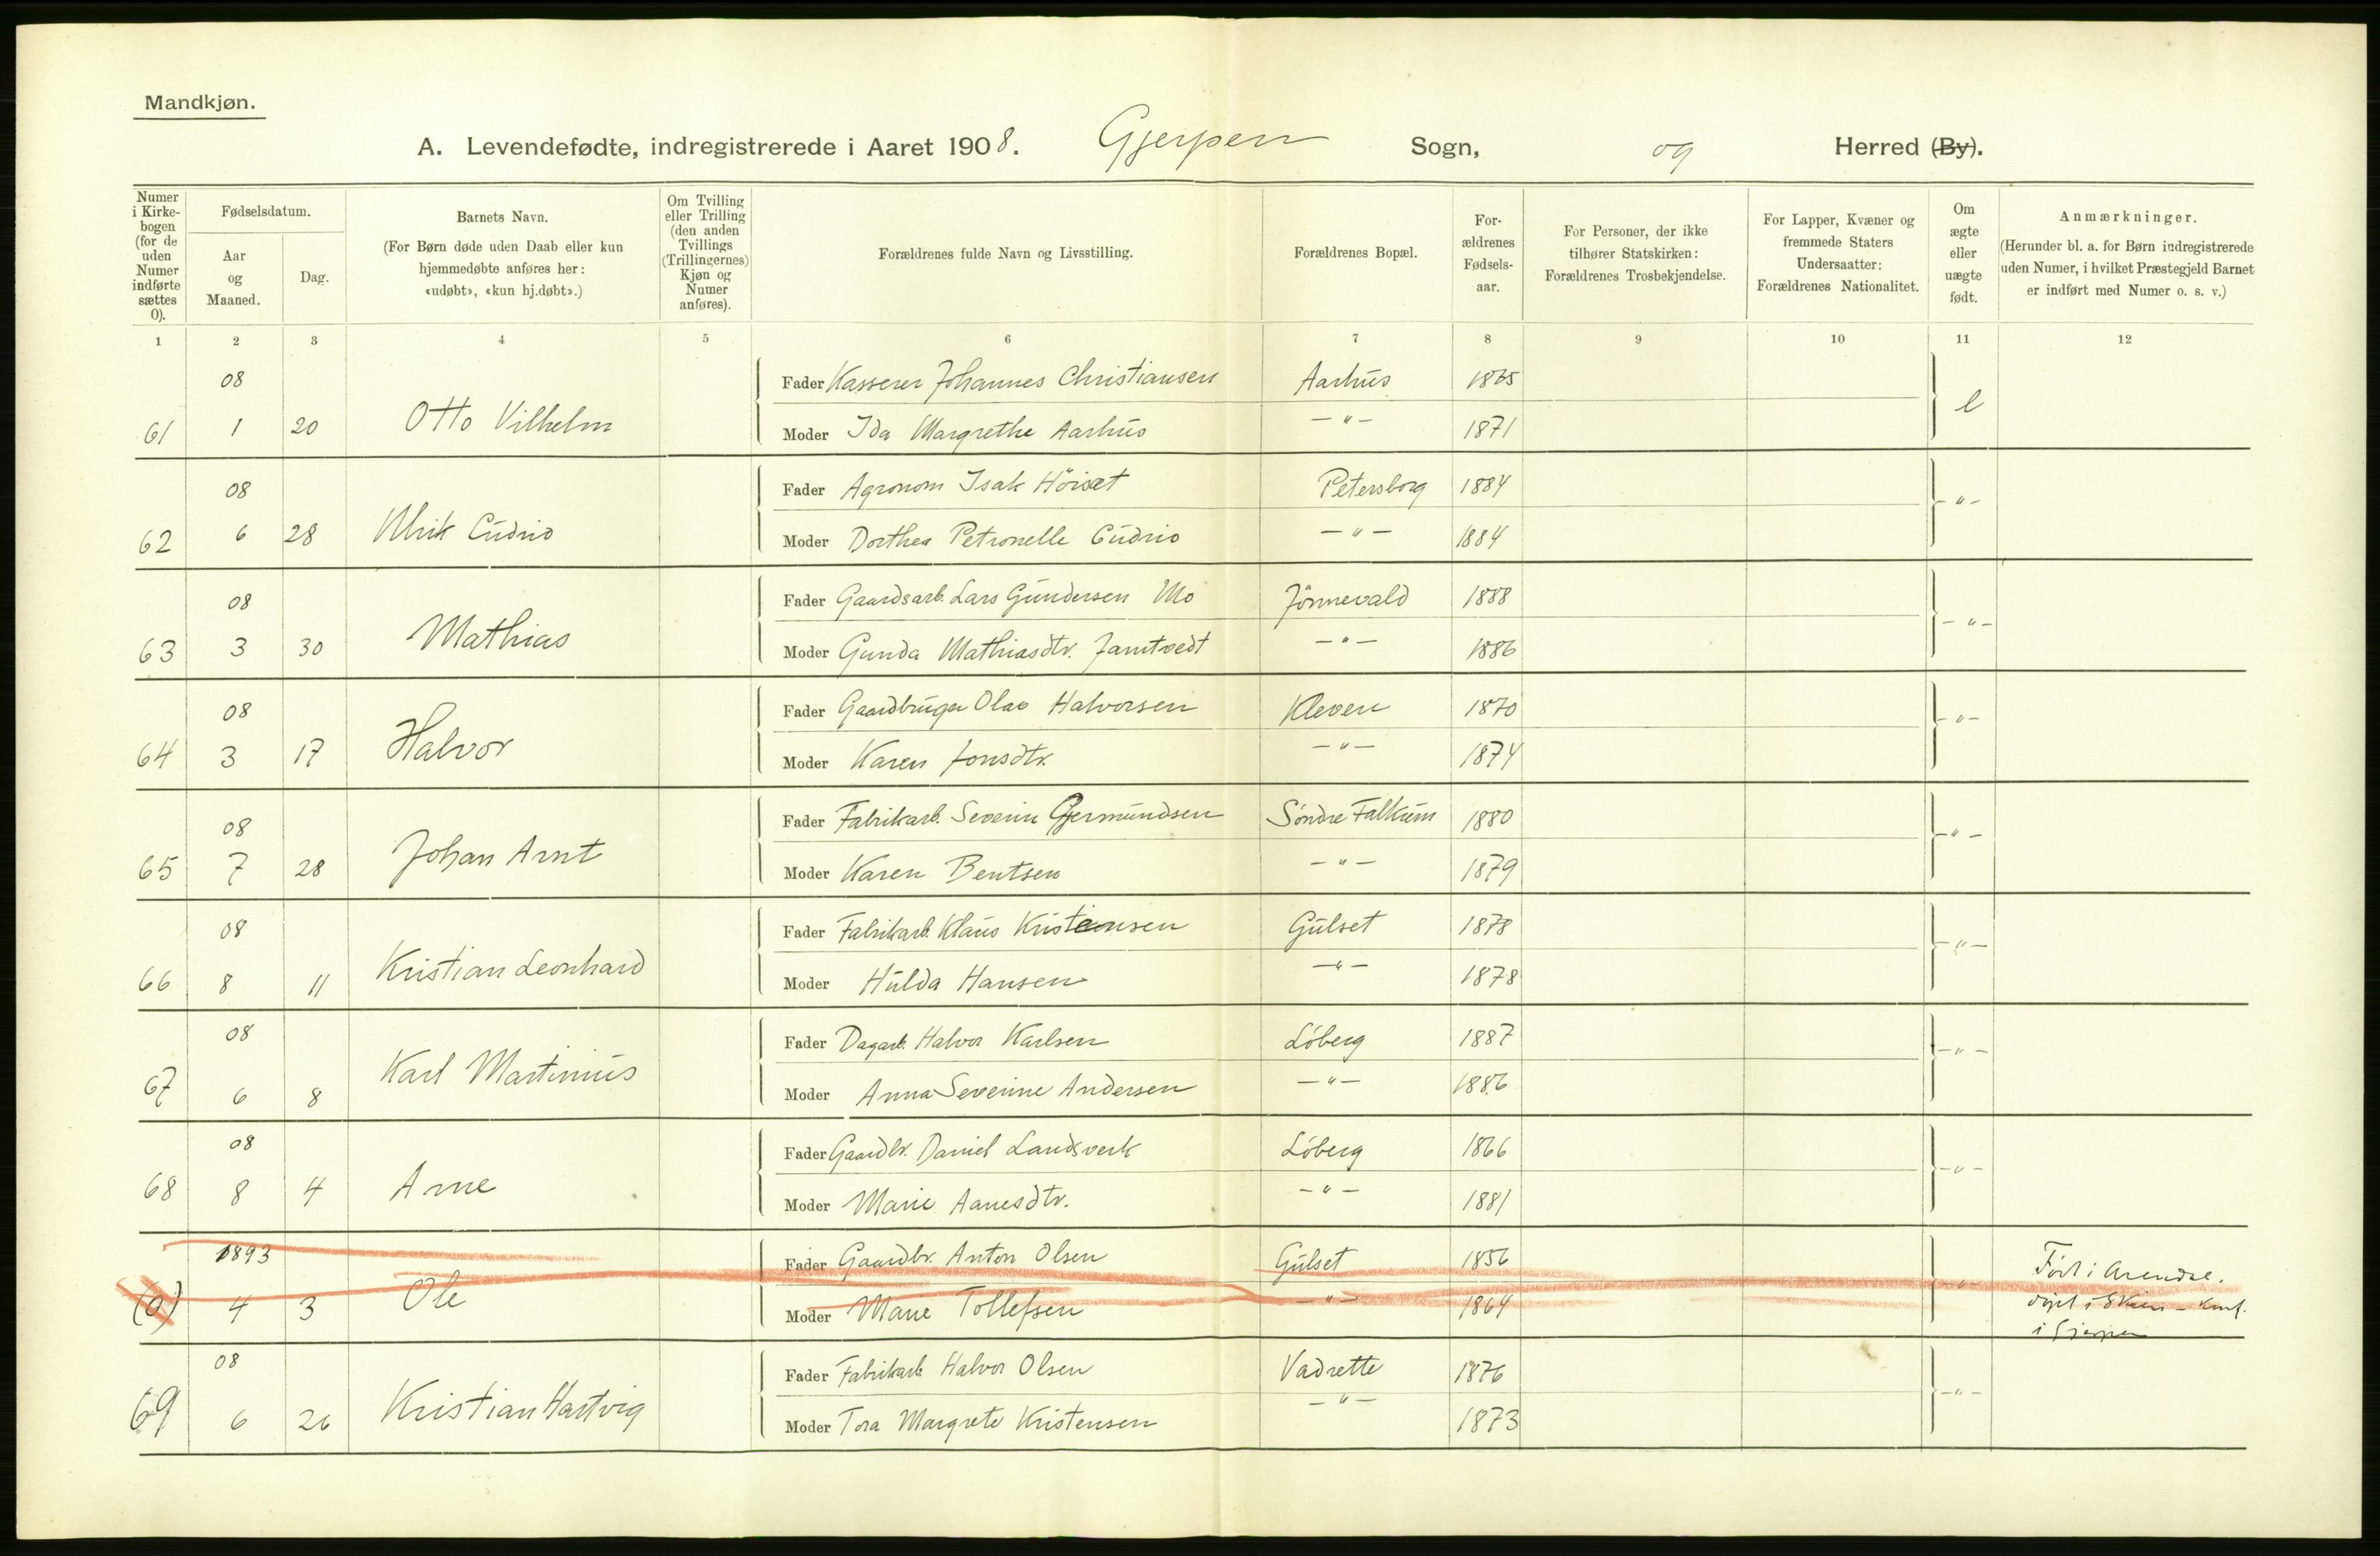 Mandkjøn.
A. Levendefødte, indregistrerede i Aaret 1908. Gjerpen Sogn, og Herred (By).
Numer i Kirkebogen (for de uden Numer indførte sættes 0).
Fødselsdatum.
Aar og Maaned.
Dag.
Barnets Navn.
(For Børn døde uden Daab eller kun hjemmedøbte anføres her: «udøbt», «kun hj.døbt».)
Om Tvilling eller Trilling (den anden Tvillings (Trillingernes) Kjøn og Numer anføres).
Forældrenes fulde Navn og Livsstilling.
Forældrenes Bopæl.
Forældrenes Fødselsaar.
For Personer, der ikke tilhører Statskirken: Forældrenes Trosbekjendelse.
For Lapper, Kvæner og fremmede Staters Undersaatter: Forældrenes Nationalitet.
Om ægte eller uægte født.
Anmærkninger.
(Herunder bl. a. for Børn indregistrerede uden Numer, i hvilket Præstegjeld Barnet er indført med Numer o. s. v.)
1 2 3 4 5 6 7 8 9 10 11 12
08 Fader Kasserer Johannes Christiansen Aarhus 1865
61 1 20 Otto Vilhelm Moder Ida Margrethe Aarhus —"— 1871 e
08 Fader Agronom Isak Höisæt Petersborg 1884
62 6 28 Ulrik Cudrio Moder Dorthea Petronelle Cudrio —"— 1884 —"—
08 Fader Gaardsarb. Lars Gundersen Mo Jönnevald 1888
63 3 30 Mathias Moder Gunda Mathiasdtr. Jamtvedt —"— 1886 —"—
08 Fader Gaardbruger Olav Halvorsen Kleven 1870
64 3 17 Halvor Moder Karen Jonsdtr. —"— 1874 —"—
08 Fader Fabrikarb. Severin Gjermundsen Söndre Falkum 1880
65 7 28 Johan Arnt Moder Karen Bentsen —"— 1879 —"—
08 Fader Fabrikarb. Klaus Kristensen Gulset 1878
66 8 11 Kristian Leonhard Moder Hulda Hansen —"— 1878 —"—
08 Fader Dagarb. Halvor Karlsen Löberg 1887
67 6 8 Karl Martinius Moder Anna Severine Andersen —"— 1886 —"—
08 Fader Gaardbr. Daniel Landsverk Löberg 1866
68 8 4 Arne Moder Marie Aanesdtr. —"— 1881 —"—
1893 Fader Gaardbr. Anton Olsen Gulset 1856 Föd i Arendal.
(0) 4 3 Ole Moder Marie Tollefsen —"— 1864 " döpt i Skien – konf.
i Gjerpen
08 Fader Fabrikarb. Halvor Olsen Vadrette 1876
69 6 26 Kristian Hartvig Moder Tora Margrete Kristensen —"— 1873 —"—